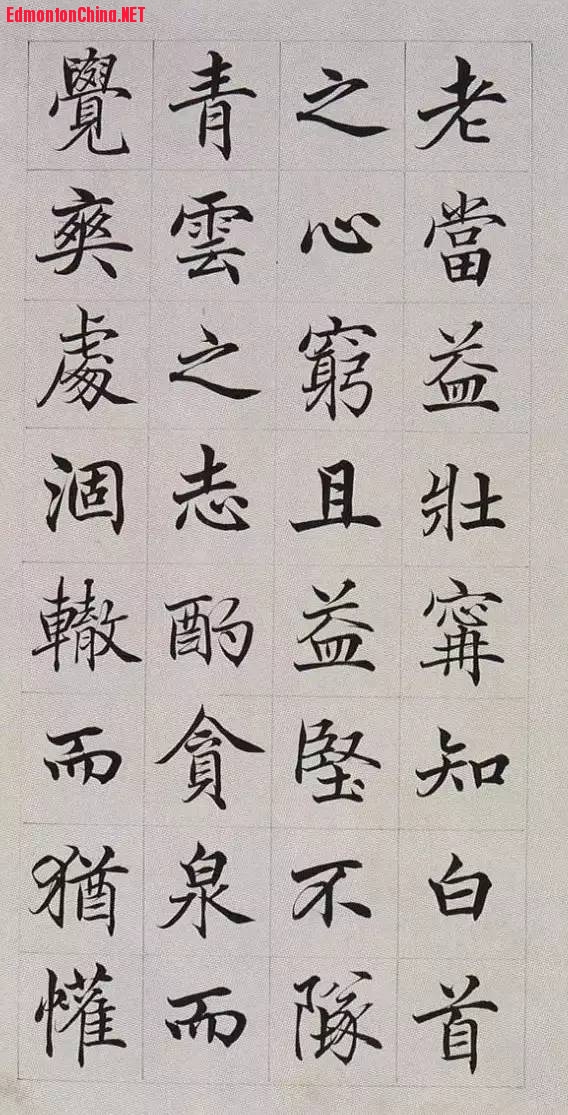 EdmontonChina.NET
老當益壯寗知白首
之心窮且益堅不隊
青雲之志酌貪泉而
覺爽處涸轍而猶懽